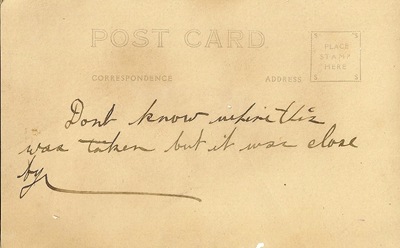 POST CARD
PLACE
STAMP
HERE
CORRESPONDENCE
ADDRESS
Dont know where this
was taken but it was close
by